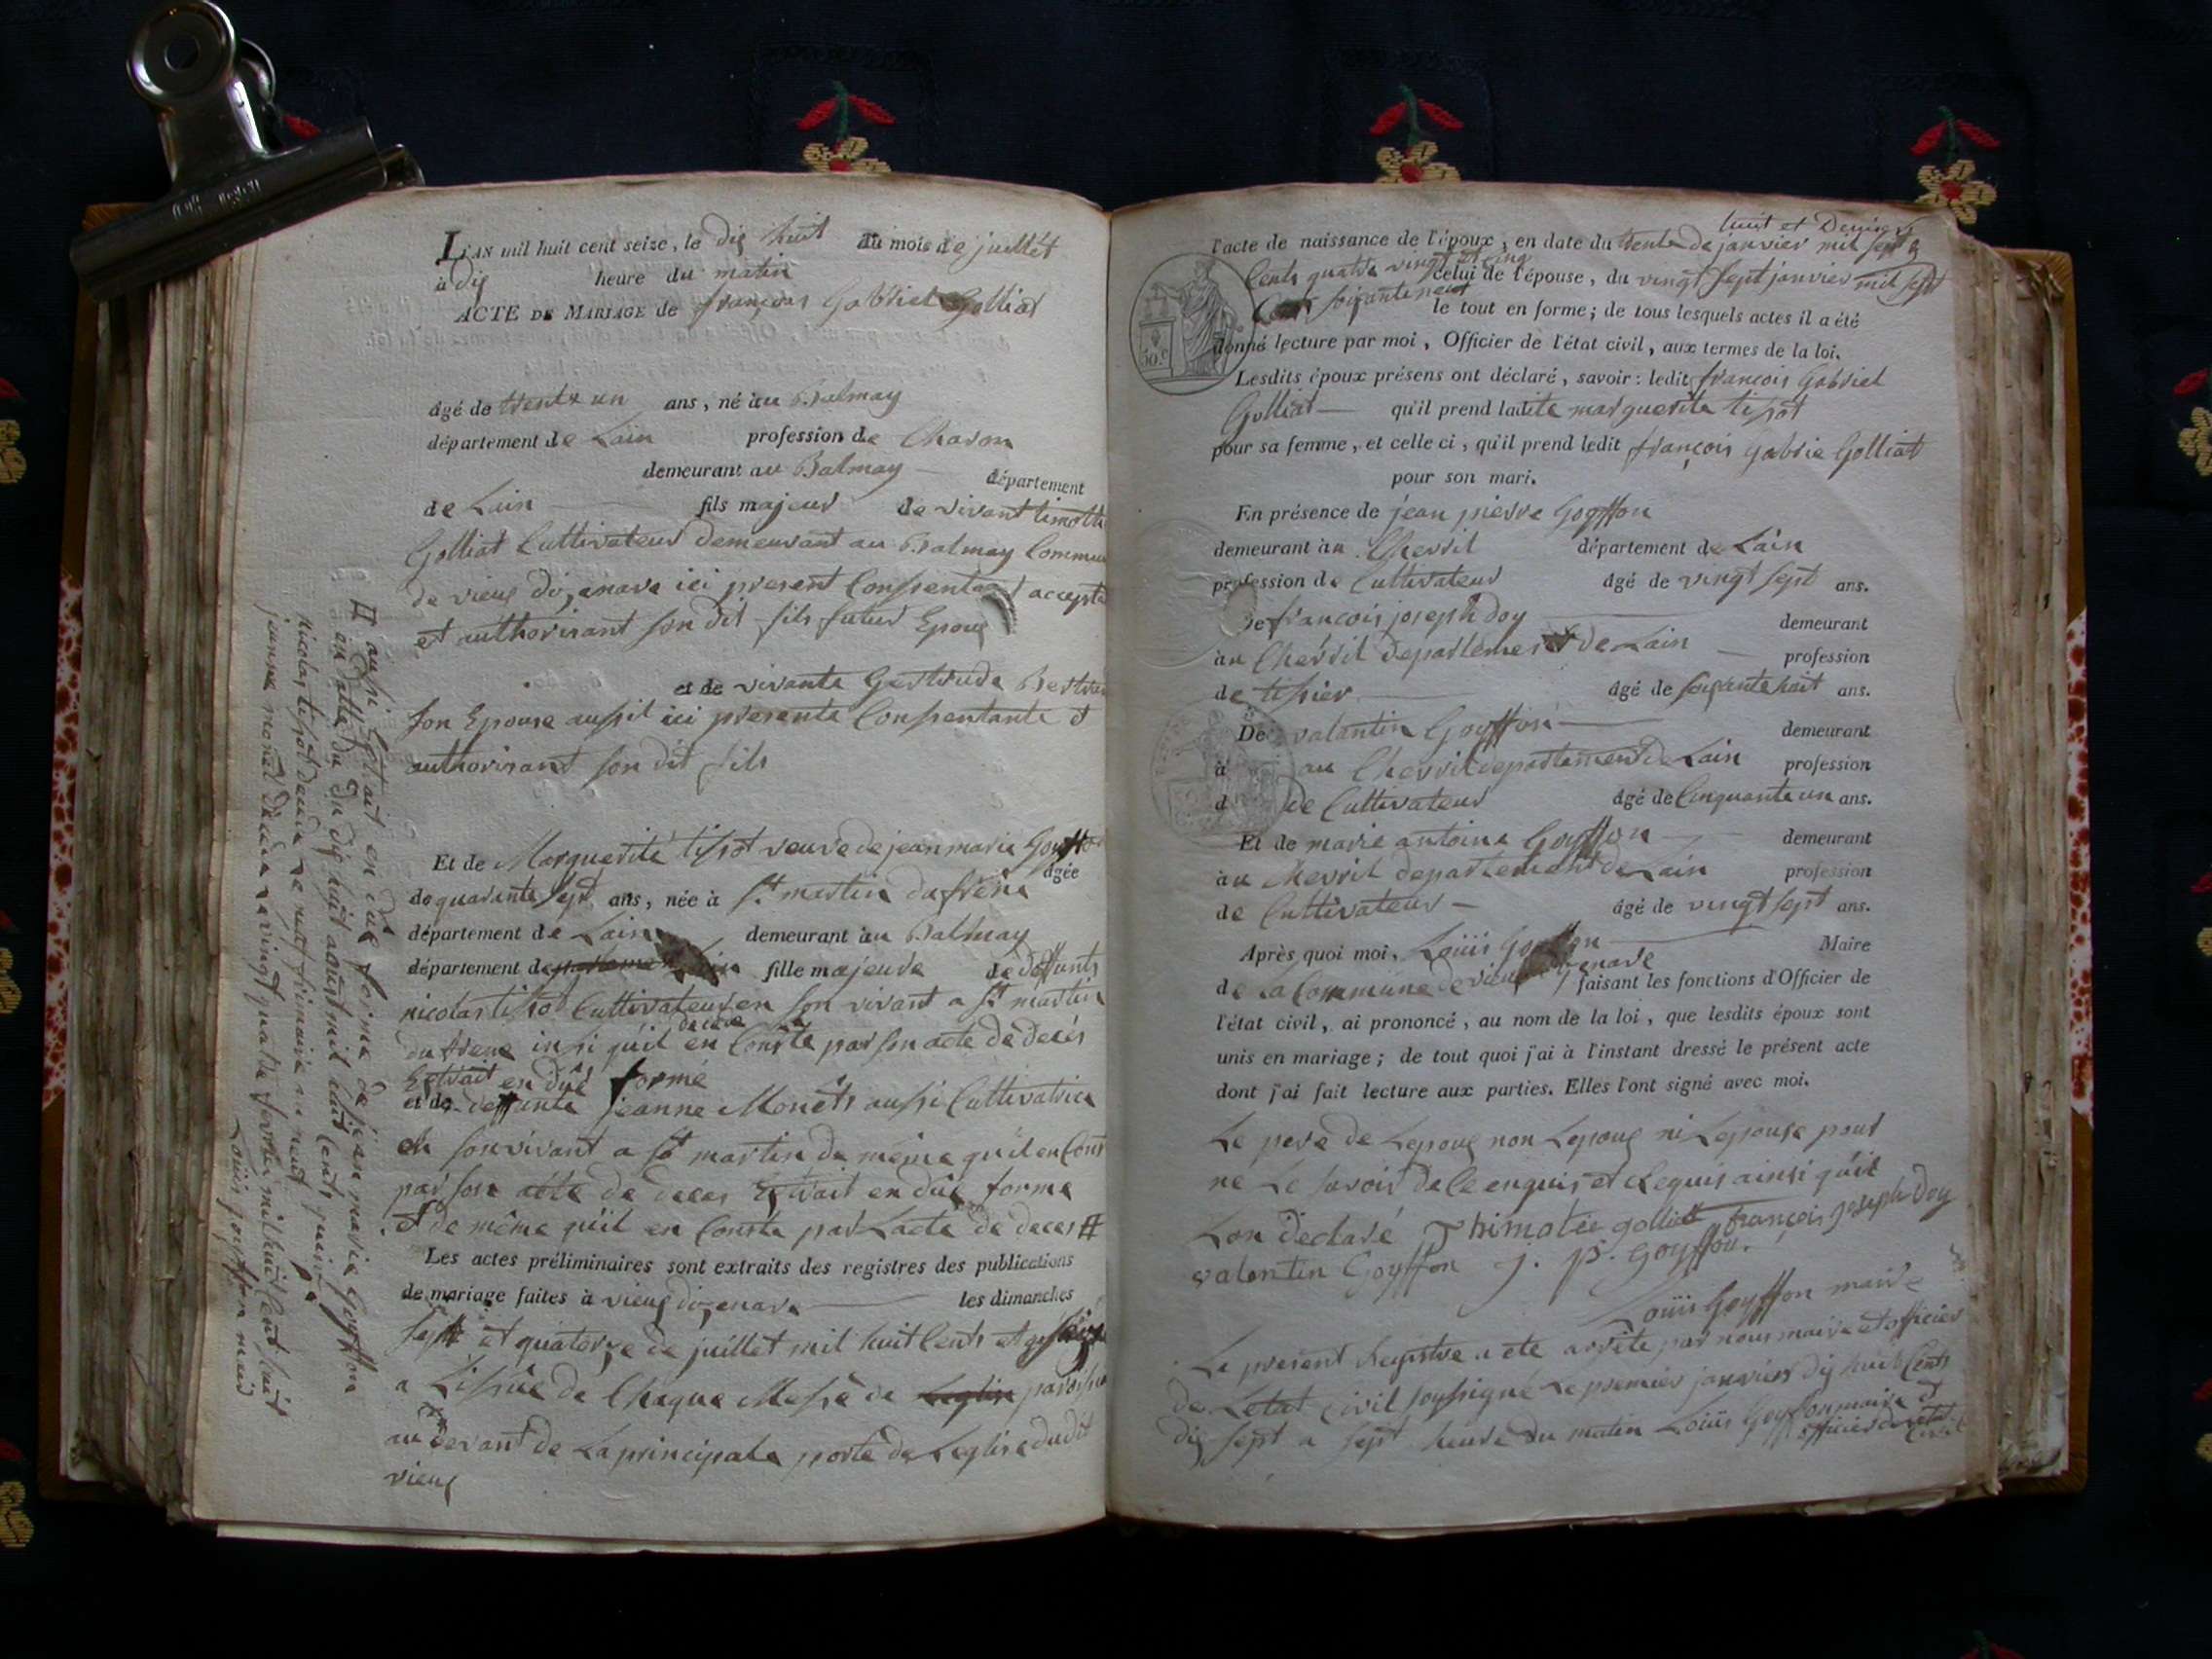 L'AN mil huit cent seize, le dix huit du mois de juillet
à dix heure du matin
ACTE DE MARIAGE de françois Gabriel Golliat
âgé de trente un ans, né au Balmay
département de Lain profession de Charon
demeurant au Balmay département
de Lain fils majeur de vivant timothé
Golliat Cultivateur demeurant au Balmay Commune
de vieux d'izenave ici present Consentant acceptant
et authorisant son dit fils futur Epoux
et de vivante Gertrude
son Epouse aussi ici presente Consentante &
authorisant son dit fils
Et de Marguerite tissot veuve de jean marie Goyffon âgée
de quarante sept ans, née à St martin du frêne
département de Lain demeurant au Balmay
département de fille majeure de deffunts
nicolas tissot Cultivateur en son vivant a St martin
du frene insi qu'il en Conste par son acte de décès
Extrait en düe forme
et de deffunte jeanne Monêt aussi Cultivatrice
en son vivant a St martin de même qu'il en Cons
par son acte de deces Extrait en düe forme
et de même qu'il en Conste par Lacte de deces #
Les actes préliminaires sont extraits des registres des publications
de mariage faites à vieux d'izenave les dimanches
sept et quatorze de juillet mil huit Cents et
a Lissüe de Chaque Messe de
au devant de La principale porte de Leglise dudit
vieux
# aussi Extrait en düe forme de jean marie Goyffon
en datte du dix huit aoust mil huit Cents quinze
nicolas tissot decede Le
jeanne monet decedé Le vingt quatre mil huit Cent huit
Loüis goyffon maire
l'acte de naissance de l'époux, en date du trente de janvier mil sept
Cents quatre vingt et cinq celui de l'épouse, du vingt sept janvier mil sept
Cent soixante neuf le tout en forme; de tous lesquels actes il a été
donné lecture par moi, Officier de l'état civil, aux termes de la loi.
Lesdits époux présens ont déclaré, savoir: ledit françois Gabriel
Golliat qu'il prend ladite marguerite tissot
pour sa femme, et celle ci, qu'il prend ledit françois gabrie Golliat
pour son mari.
En présence de jean pierre Goyffon
demeurant au Chevril département de Lain
profession de Cultivateur âgé de vingt sept ans.
De françois joseph doy demeurant
au Chevril departement de Lain profession
de tissier âgé de soixante huit ans.
De valantin Goyffon demeurant
à au Chevril departement de Lain profession
de Cultivateur âgé de Cinquante un ans.
Et de marie antoine Goyffon demeurant
au Chevril departement de Lain profession
de Cultivateur âgé de vingt sept ans.
Après quoi moi, Loüis Goyffon Maire
de La Commune de vieux d'izenave faisant les fonctions d'Officier de
l'état civil, ai prononcé, au nom de la loi, que lesdits époux sont
unis en mariage; de tout quoi j'ai à l'instant dressé le présent acte
dont j'ai fait lecture aux parties. Elles l'ont signé avec moi.
Le pere de Lepoux non Lepoux ni Lepouse pour
ne Le savoir de Ce enquis et Requis ainsi qu'il
Lon déclaré Thimotée golliat françois joseph doy
valentin Goyffon j. p. Goyffon.
Loüis Goyffon maire
Le present Registre a été arrêté par nous maire et officier
de Létat Civil soussigné Le premier janvier dix huit Cents
dix sept a sept heure du matin Loüis Goyffon maire &
officier de Létat Civil